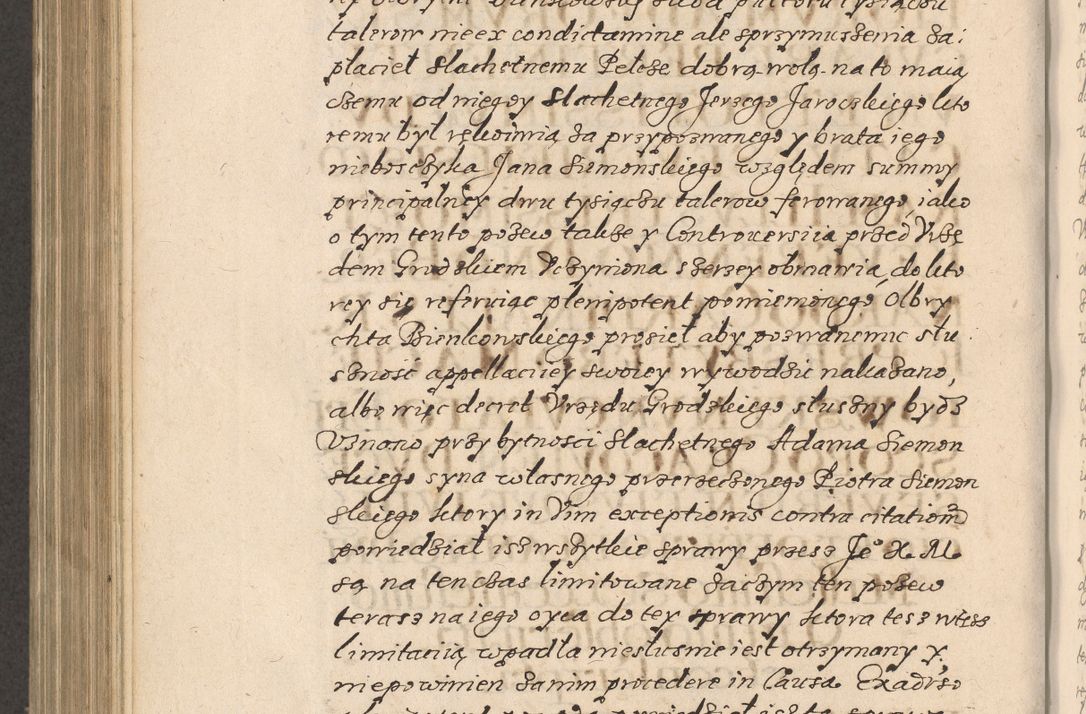 talerow nie ex condictamine ale sprzymuszenia za:
płacieł Slachetnemu Pełoze dobrą wolą na to maią
czemu od niegdy Slachetnego Jerzego Jaroczkiego kto
remu był rękoimią za przypoznanego y brata iego
nieboszczyka Jana Siemonskiego względem summy
principalney dwu tysiączu talerow ferowanego, iako
o tym tento pozew także y Controuersiia przed Vrzę
dem Grodzkiem Vczyniona szerzey obmawia, do kto
rey się referuiąc plenipotent pomienionego Olbry
chta Bienkowskiego prosieł aby pozwanemu słu
szność appellaciiey swoiey wywodzić nakazano,
albo więc decret Vrzędu Grodzkiego słuszny bydz
Vznano przy bytności Slachetnego Adama Siemon
skiego syna własnego przerzeczonego Piotra Siemon
skiego ktory in Vim exceptionis contra citationem
powiedział isz wszytkie sprawy przesz Je° X. M.
są na ten czas limitowane zaczym ten pozew
terasz na iego oyca do tey sprawy ktora tesz wtesz
limitaciią wpadła niesłusznie iest otrzymany y
niepowinien zanim procedere in Causa.